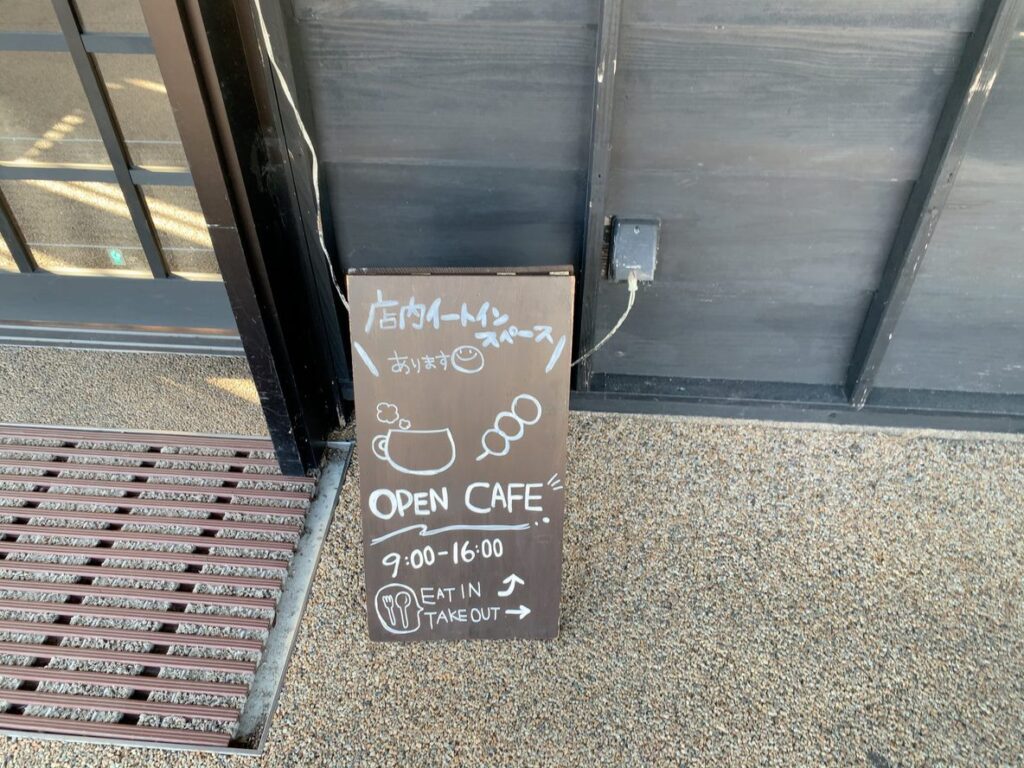 店内イートイン
スペース
あります
OPEN CAFE
9:00-16:00
EAT IN
TAKE OUT →